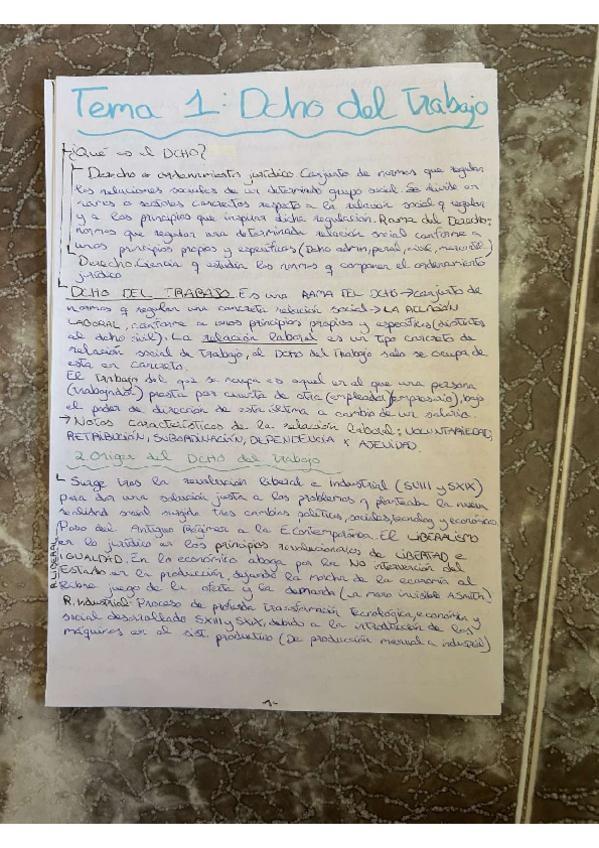 Tema 1: Dcho del trabajo
¿Qué es el DCHO?
Derecho u ordenamiento jurídico. Conjunto de normas que regulan
las relaciones sociales de un determindo grupo social. Se divide en
ramas o sectores concretos respecto a la relación social q regulan
y a los principios que inspiran dicha regulación. Rama del Derecho:
normas que regulan una determinada relación social conforme a
unos principios propios y específicos (Dcho admin, penal, civil, mercantil)
Derecho. Ciencia q estudia las normas q componen el ordenamiento
jurídico
DCHO DEL TRABAJO Es una RAMA DEL DCHO → conjunto de
normas q regulan una concreta relación social → LA RELACIÓN
LABORAL, conforme a unos principios propios y específicos (distintos
al dcho civil). La relación laboral es un tipo concreto de
relación social de trabajo, el DCHO del Trabajo solo se ocupa de
esta en concreto.
El Trabajo del que se ocupa es aquel en el que una persona
(trabajador) presta por cuenta de otra (empleador/empresario), bajo
el poder de dirección de esta última a cambio de un salario.
→ Notas características de la relación laboral: VOLUNTARIEDAD,
RETRIBUCIÓN, SUBORDINACIÓN, DEPENDENCIA Y AJENIDAD.
2. Origen del DCHO del trabajo
Surge tras la revolución liberal e Industrial (SVIII y SXIX)
para dar una solución justa a los problemas q planteaba la nueva
realidad social surgida tras cambios políticos, sociales, tecnolog y económicos
Paso del Antiguo Régimen a la E contemporánea. El LIBERALISMO
en lo jurídico es los principios revolucionarios de LIBERTAD e
IGUALDAD. En lo económico aboga por la NO intervención del
Estado en la producción, dejando la marcha de la economía al
libre juego de la oferta y la demanda (La mano invisible A.Smith)
R.LIBERAL
R. Industrial. Proceso de profunda transformación tecnológica, económica y
social desarrollado SXIII y SXIX, debido a la introducción de las
máquinas en el sist productivo (De producción manual a industrial)
-1-